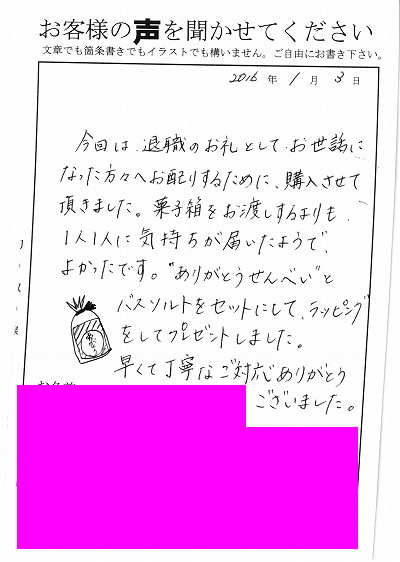 お客様の声を聞かせてください
文章でも箇条書きでもイラストでも構いません。ご自由にお書き下さい。
2016 年 1 月 3 日
今回は、退職のお礼として、お世話に
なった方々へお配りするために、購入させて
頂きました。菓子箱をお渡しするよりも、
1人1人に気持ちが届いたようで、
よかったです。"ありがとうせんべい"と
バスソルトをセットにして、ラッピング
をしてプレゼントしました。
早くて丁寧なご対応ありがとう
ございました。